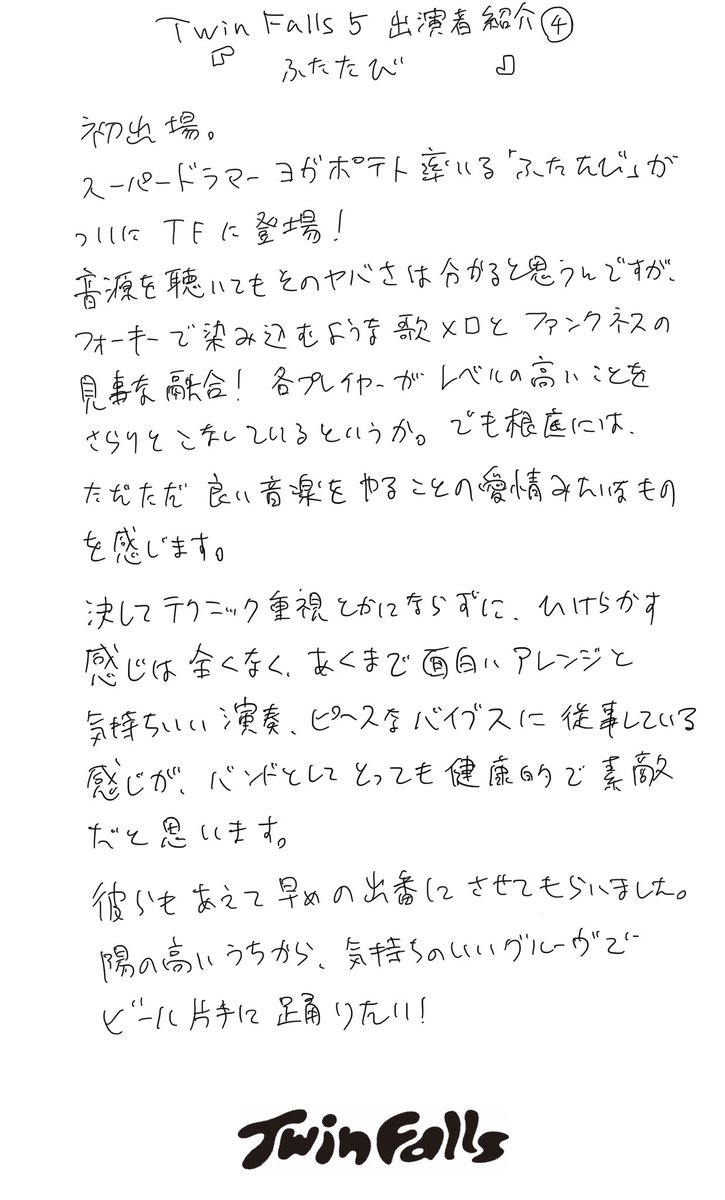 Twin Falls 5 出演者紹介④
『 ふたたび 』
初出場。
スーパードラマーヨガポテト率いる「ふたたび」が
ついに TFに登場!
音源を聴いてもそのヤバさは分かると思うんですが、
フォーキーで染み込むような歌メロとファンクネスの
見事な融合! 各プレイヤーがレベルの高いことを
さらりとこなしているというか。でも根底には、
ただただ良い音楽をやることの愛情みたいなもの
を感じます。
決してテクニック重視とかにならずに、ひけらかす
感じは全くなく、あくまで面白いアレンジと
気持ちいい演奏、ピースなバイブスに従事している
感じが、バンドとしてとっても健康的で素敵
だと思います。
彼らもあえて早めの出番にさせてもらいました。
陽の高いうちから、気持ちのいいグルーヴで
ビール片手に踊りたい!
Twin Falls